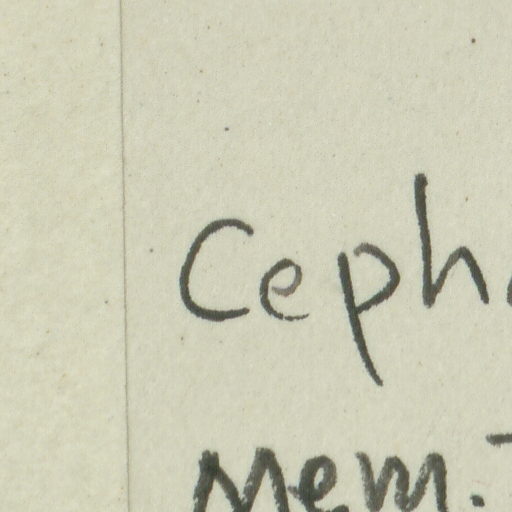 Ceph
Mem.